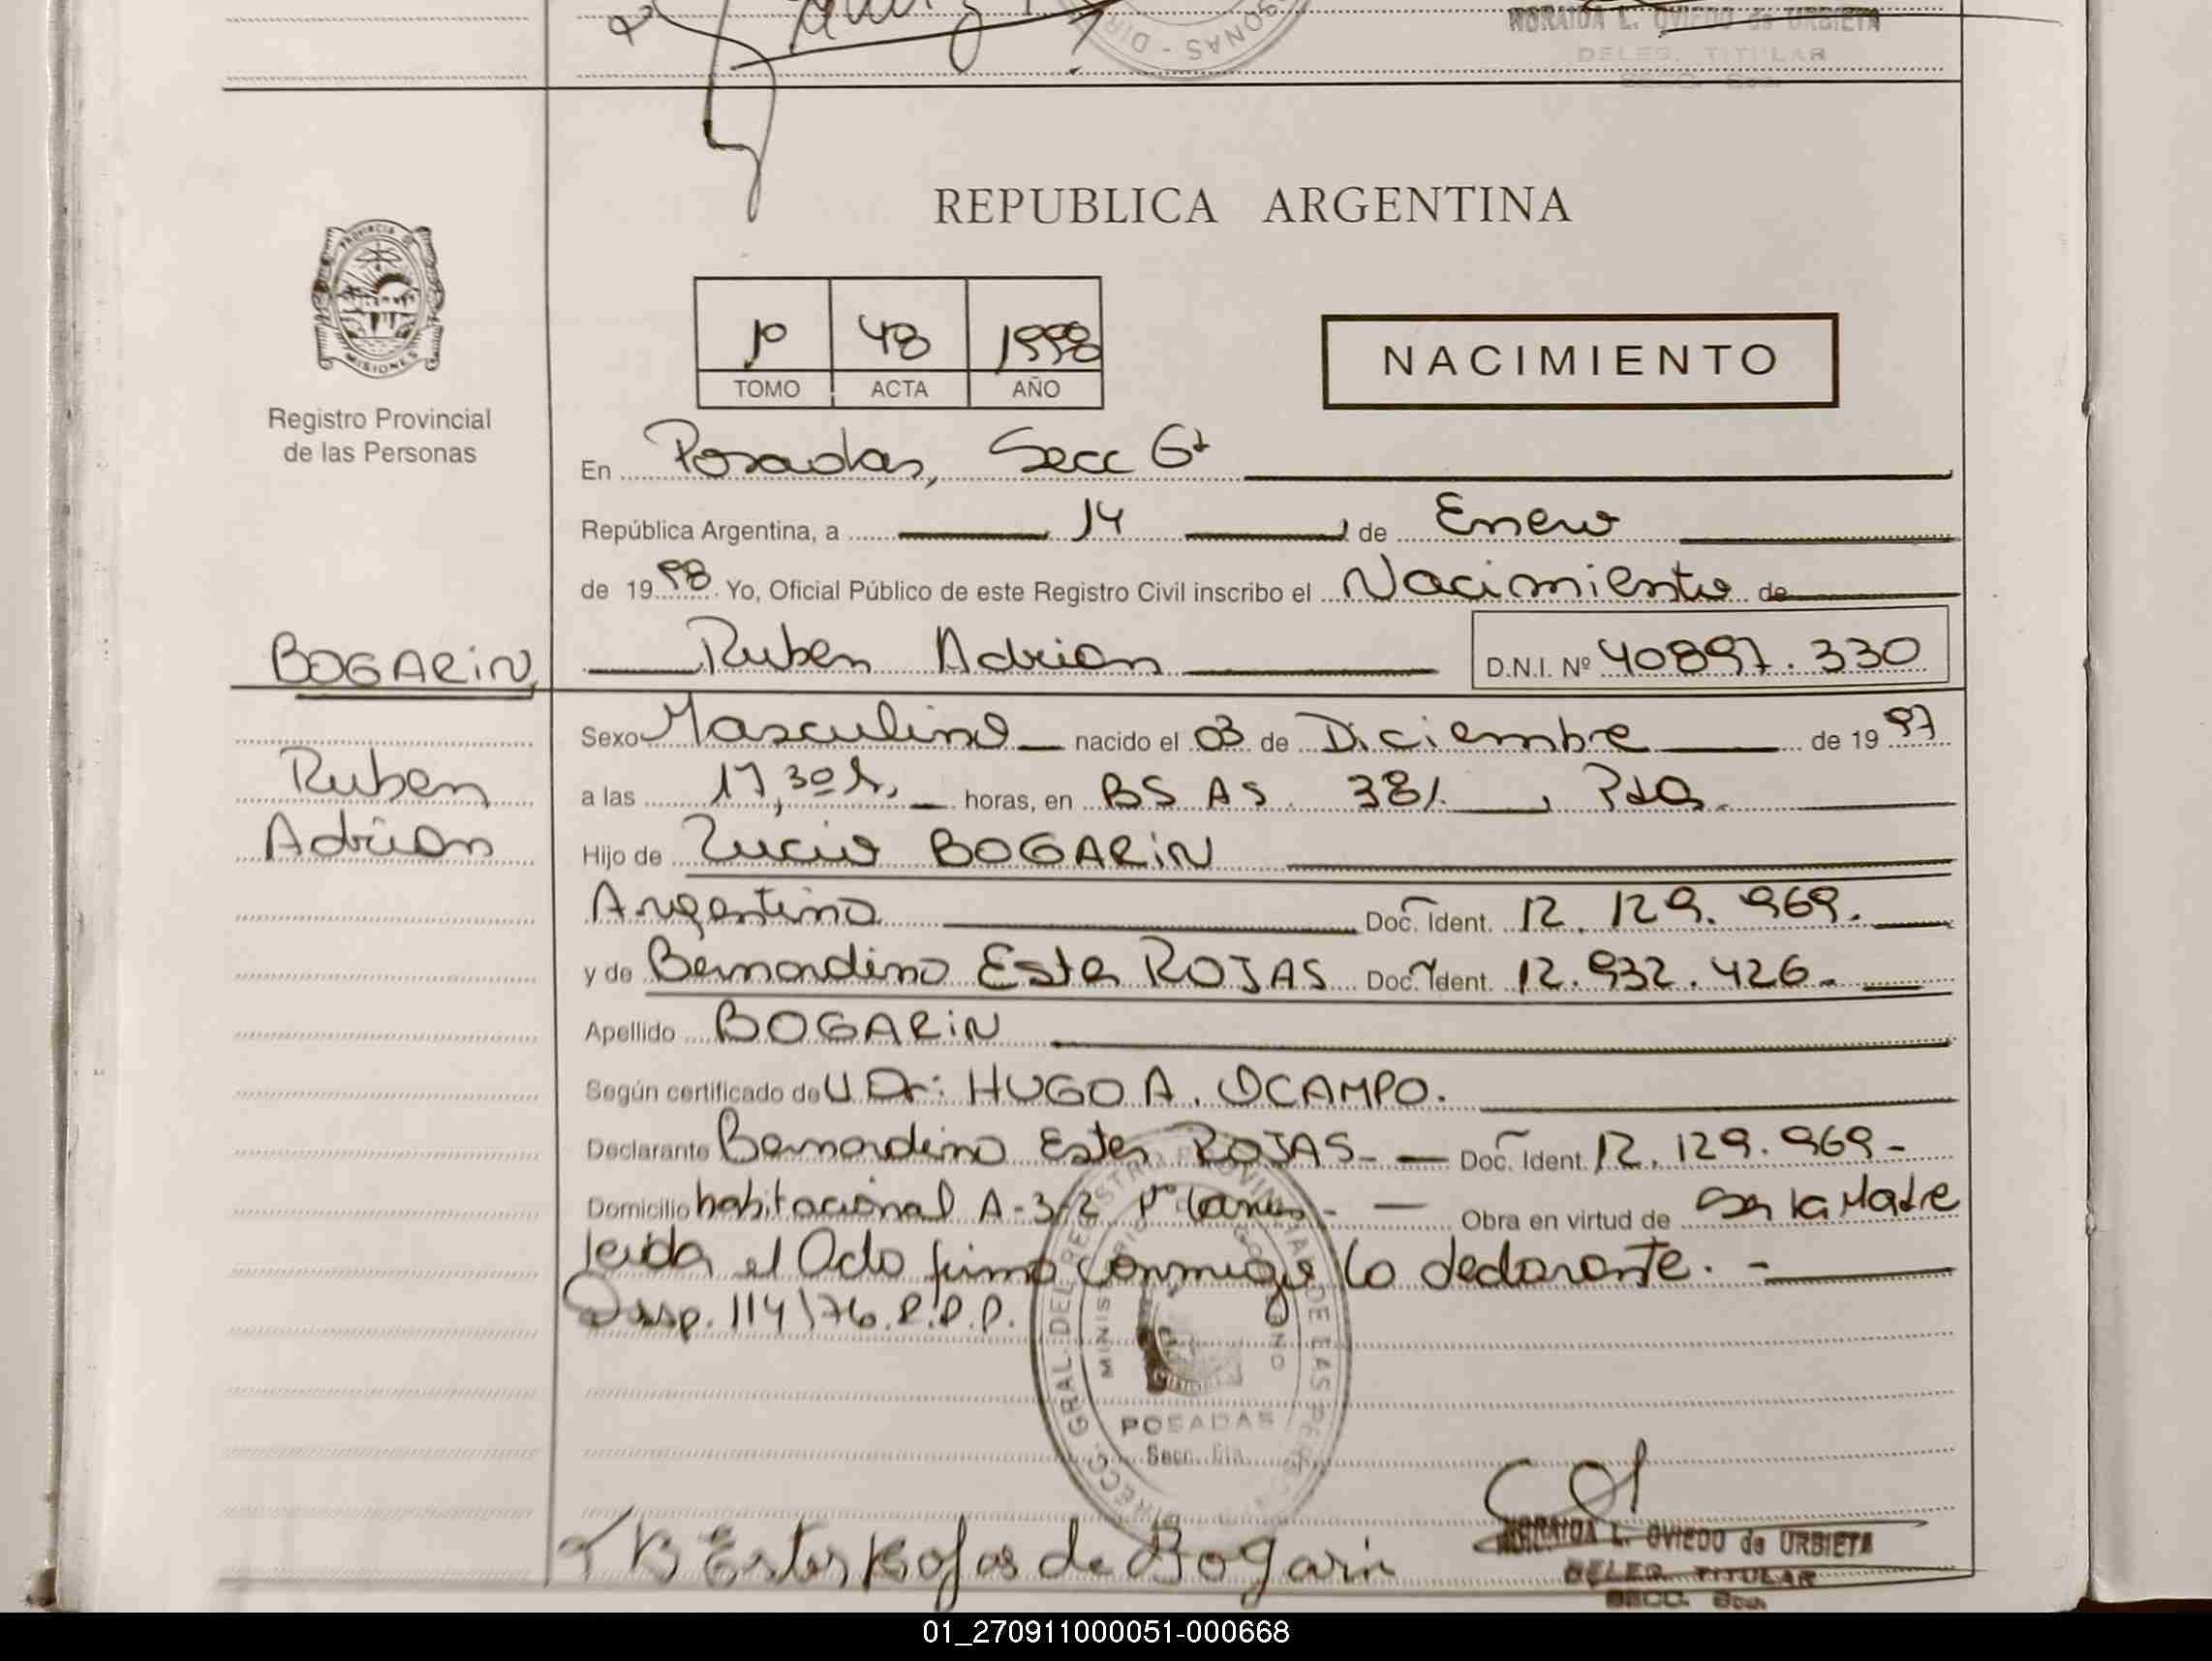 NORAIDA L. OVIEDO de URBIETA
DELEG. TITULAR
SECC. 6ta.
PROVINCIA DE
MISIONES
Registro Provincial
de las Personas
REPUBLICA ARGENTINA
1º 48 1998
TOMO ACTA AÑO
NACIMIENTO
En Posadas, Secc 6ta
República Argentina, a 14 de Enero
de 1998 Yo, Oficial Público de este Registro Civil inscribo el Nacimiento de
BOGARIN Ruben Adrian D.N.I. Nº 40897.330
Sexo Masculino nacido el 03 de Diciembre de 1997
Ruben
a las 17,30 h, horas, en BS AS. 381. , Pdas.
Adrian
Hijo de Lucio BOGARIN
Argentino Doc. Ident. 12.129.969.
y de Bernardina Ester ROJAS Doc. Ident. 12.932.426.
Apellido BOGARIN
Según certificado de U Dr: HUGO A. OCAMPO.
Declarante Bernardina Ester ROJAS- Doc. Ident. 12.129.969-
Domicilio habitacional A-3/2 Obra en virtud de Ser la Madre
leida el Acta firma conmigo la declarante. -
Disp. 114/76.R.P.P.
POSADAS
Secc. 6ta.
B Ester Rojas de Bogarin
NORAIDA L. OVIEDO de URBIETA
DELEG. TITULAR
SECC. 6ta.
01_270911000051-000668